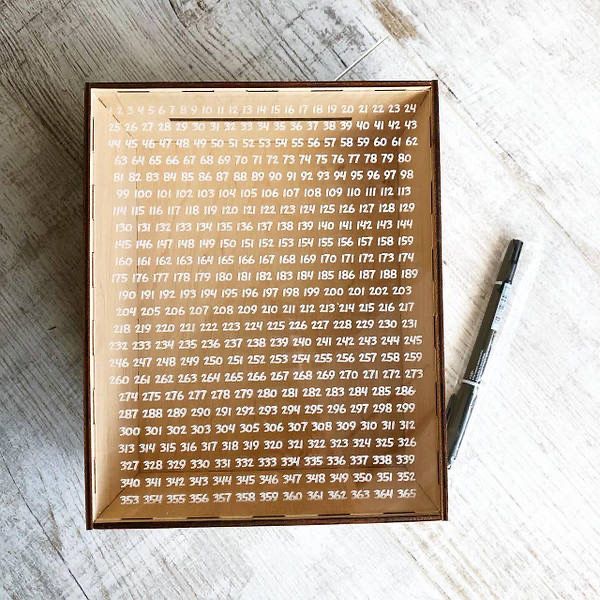 1 2 3 4 5 6 7 8 9 10 11 12 13 14 15 16 17 18 19 20 21 22 23 24
25 26 27 28 29 30 31 32 33 34 35 36 37 38 39 40 41 42 43
44 45 46 47 48 49 50 51 52 53 54 55 56 57 58 59 60 61 62
63 64 65 66 67 68 69 70 71 72 73 74 75 76 77 78 79 80
81 82 83 84 85 86 87 88 89 90 91 92 93 94 95 96 97 98
99 100 101 102 103 104 105 106 107 108 109 110 111 112 113
114 115 116 117 118 119 120 121 122 123 124 125 126 127 128 129
130 131 132 133 134 135 136 137 138 139 140 141 142 143 144
145 146 147 148 149 150 151 152 153 154 155 156 157 158 159
160 161 162 163 164 165 166 167 168 169 170 171 172 173 174
175 176 177 178 179 180 181 182 183 184 185 186 187 188 189
190 191 192 193 194 195 196 197 198 199 200 201 202 203
204 205 206 207 208 209 210 211 212 213 214 215 216 217
218 219 220 221 222 223 224 225 226 227 228 229 230 231
232 233 234 235 236 237 238 239 240 241 242 243 244 245
246 247 248 249 250 251 252 253 254 255 256 257 258 259
260 261 262 263 264 265 266 267 268 269 270 271 272 273
274 275 276 277 278 279 280 281 282 283 284 285 286
287 288 289 290 291 292 293 294 295 296 297 298 299
300 301 302 303 304 305 306 307 308 309 310 311 312
313 314 315 316 317 318 319 320 321 322 323 324 325 326
327 328 329 330 331 332 333 334 335 336 337 338 339
340 341 342 343 344 345 346 347 348 349 350 351 352
353 354 355 356 357 358 359 360 361 362 363 364 365